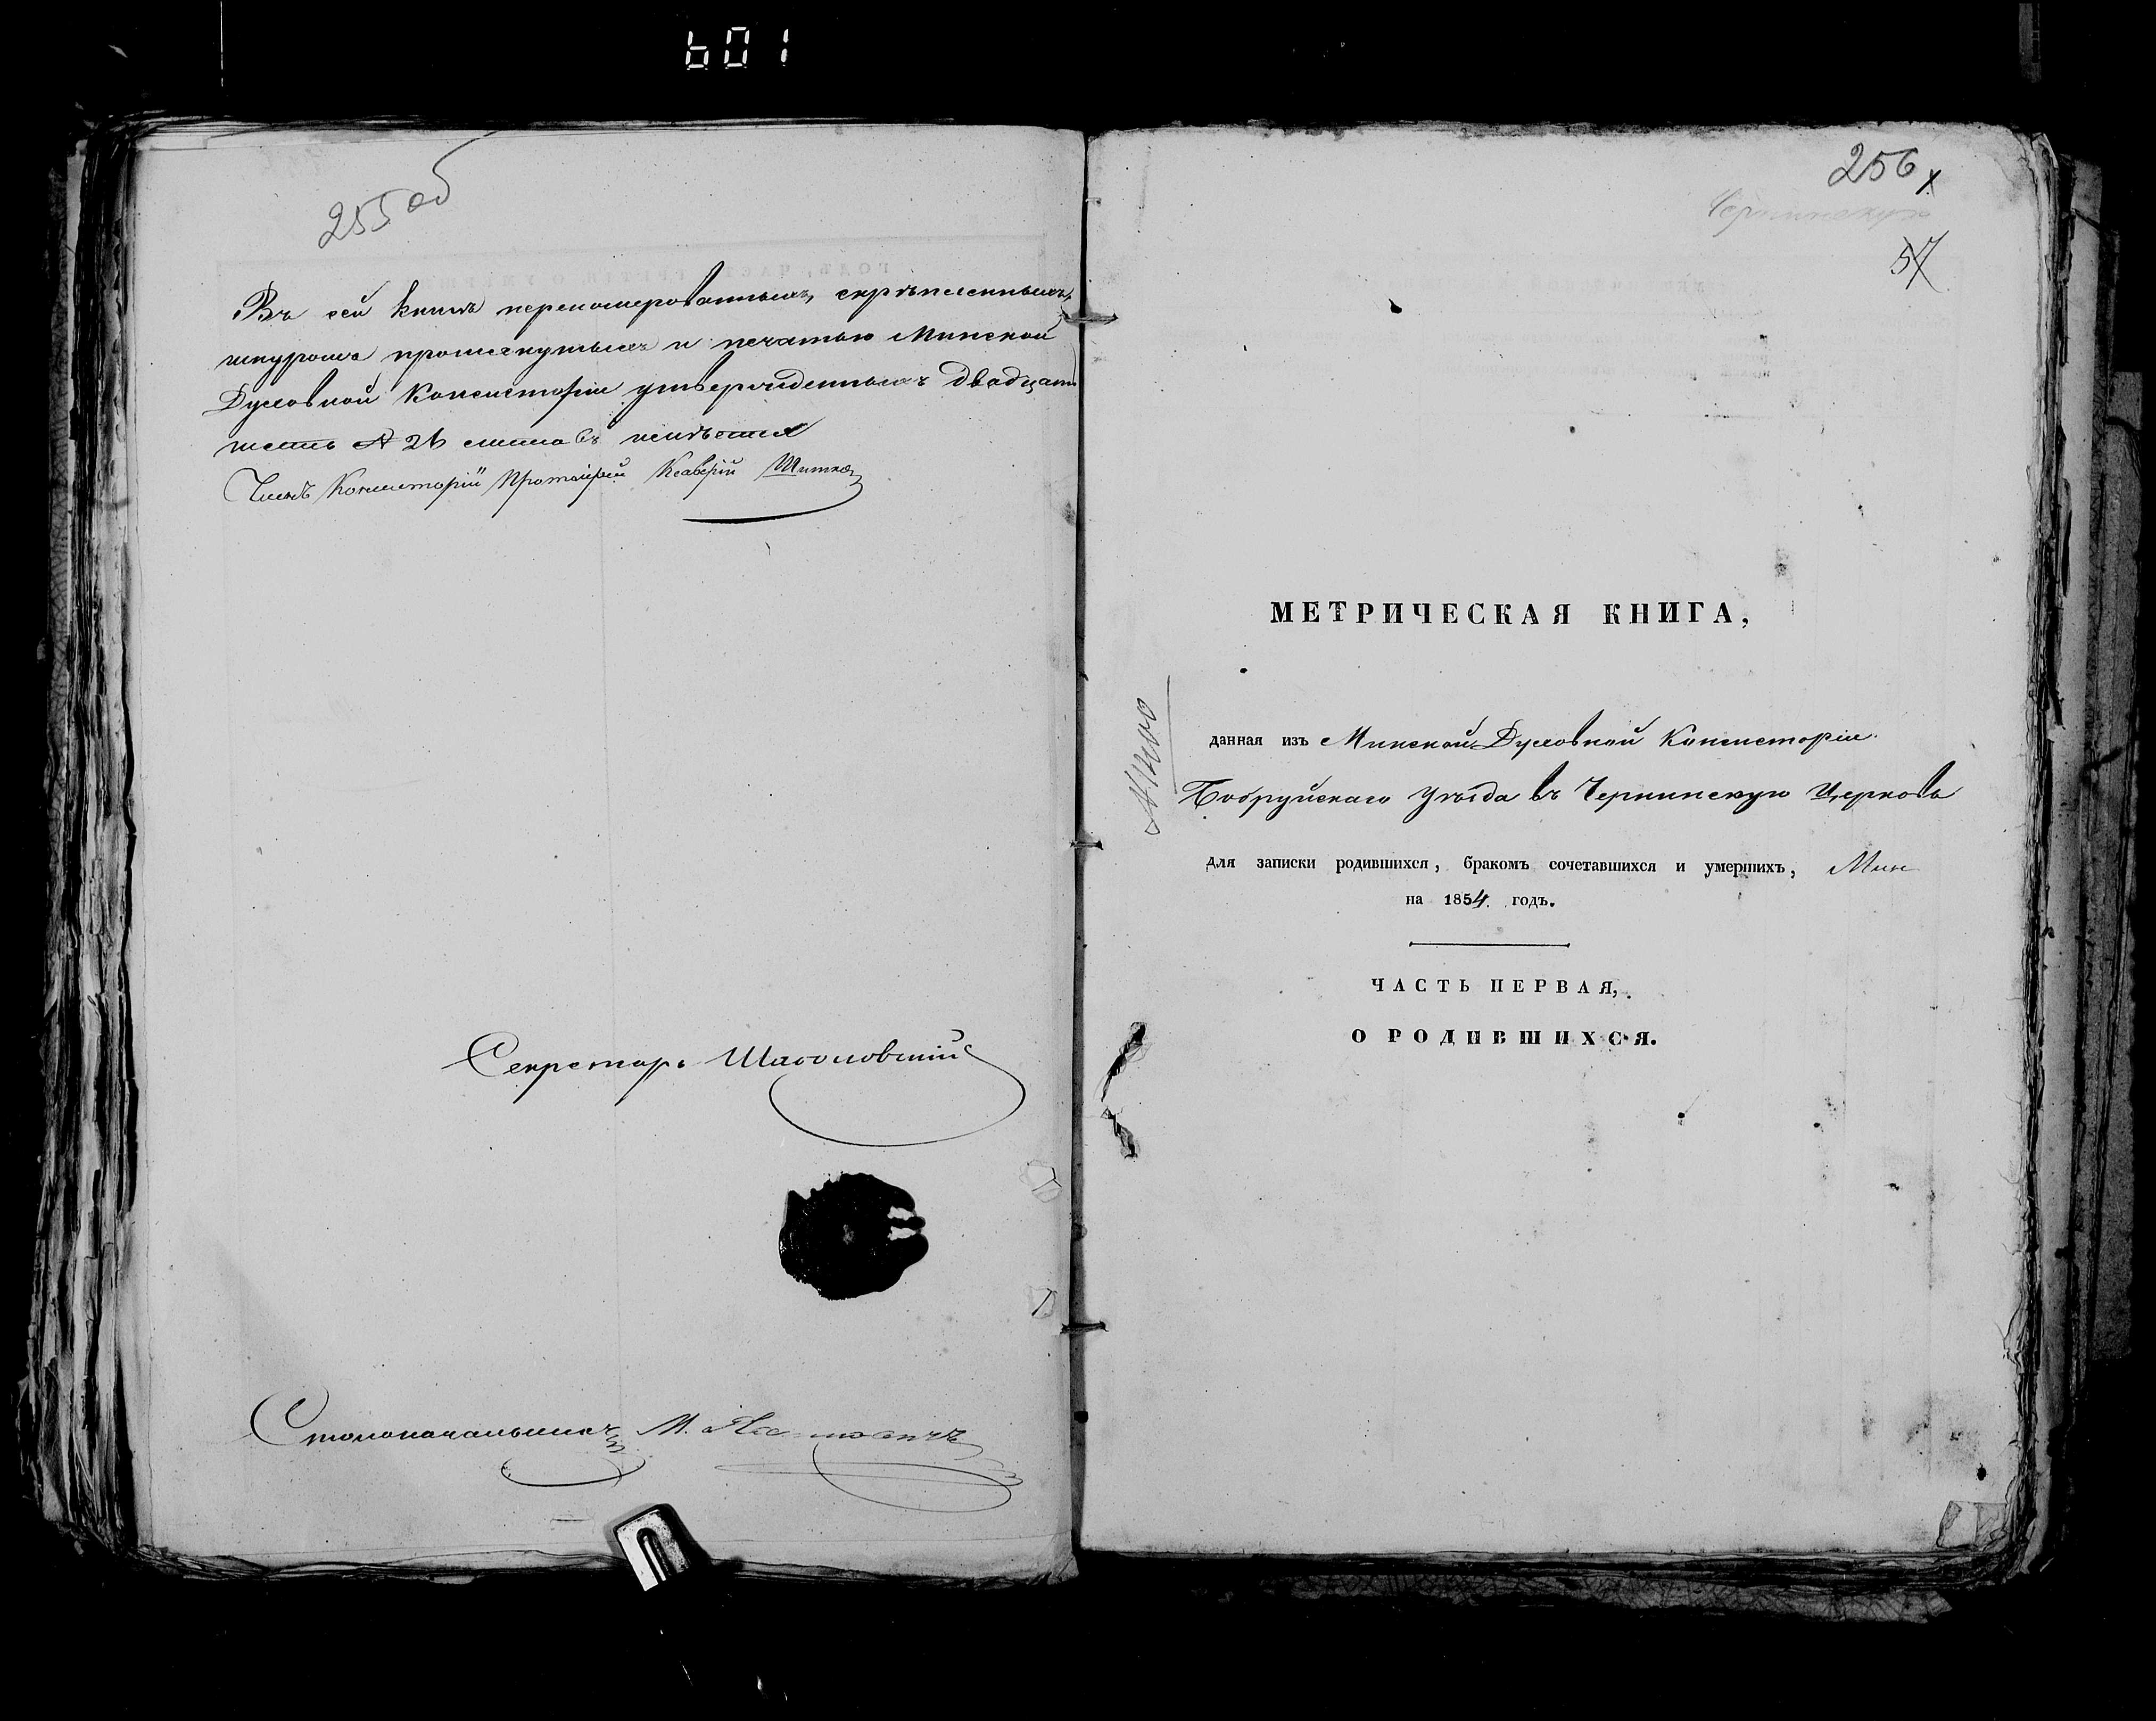 601
255 об
Въ сей книгѣ перенумерованныхъ, скрѣпленныхъ,
шнуромъ протянутыхъ и печатью Минской
Духовной Консисторіи утвержденныхъ двадцать
шесть 26 листовъ имѣется
Членъ Консисторіи Протоіерей Ксаверій
Секретарь
Столоначальникъ М.
256
Чернинскую
57
МЕТРИЧЕСКАЯ КНИГА,
данная изъ Минской Духовной Консисторіи
Бобруйскаго уѣзда въ Чернинскую Церковь
для записки родившихся, бракомъ сочетавшихся и умершихъ, Мин
на 1854. годъ.
ЧАСТЬ ПЕРВАЯ,
О РОДИВШИХСЯ.